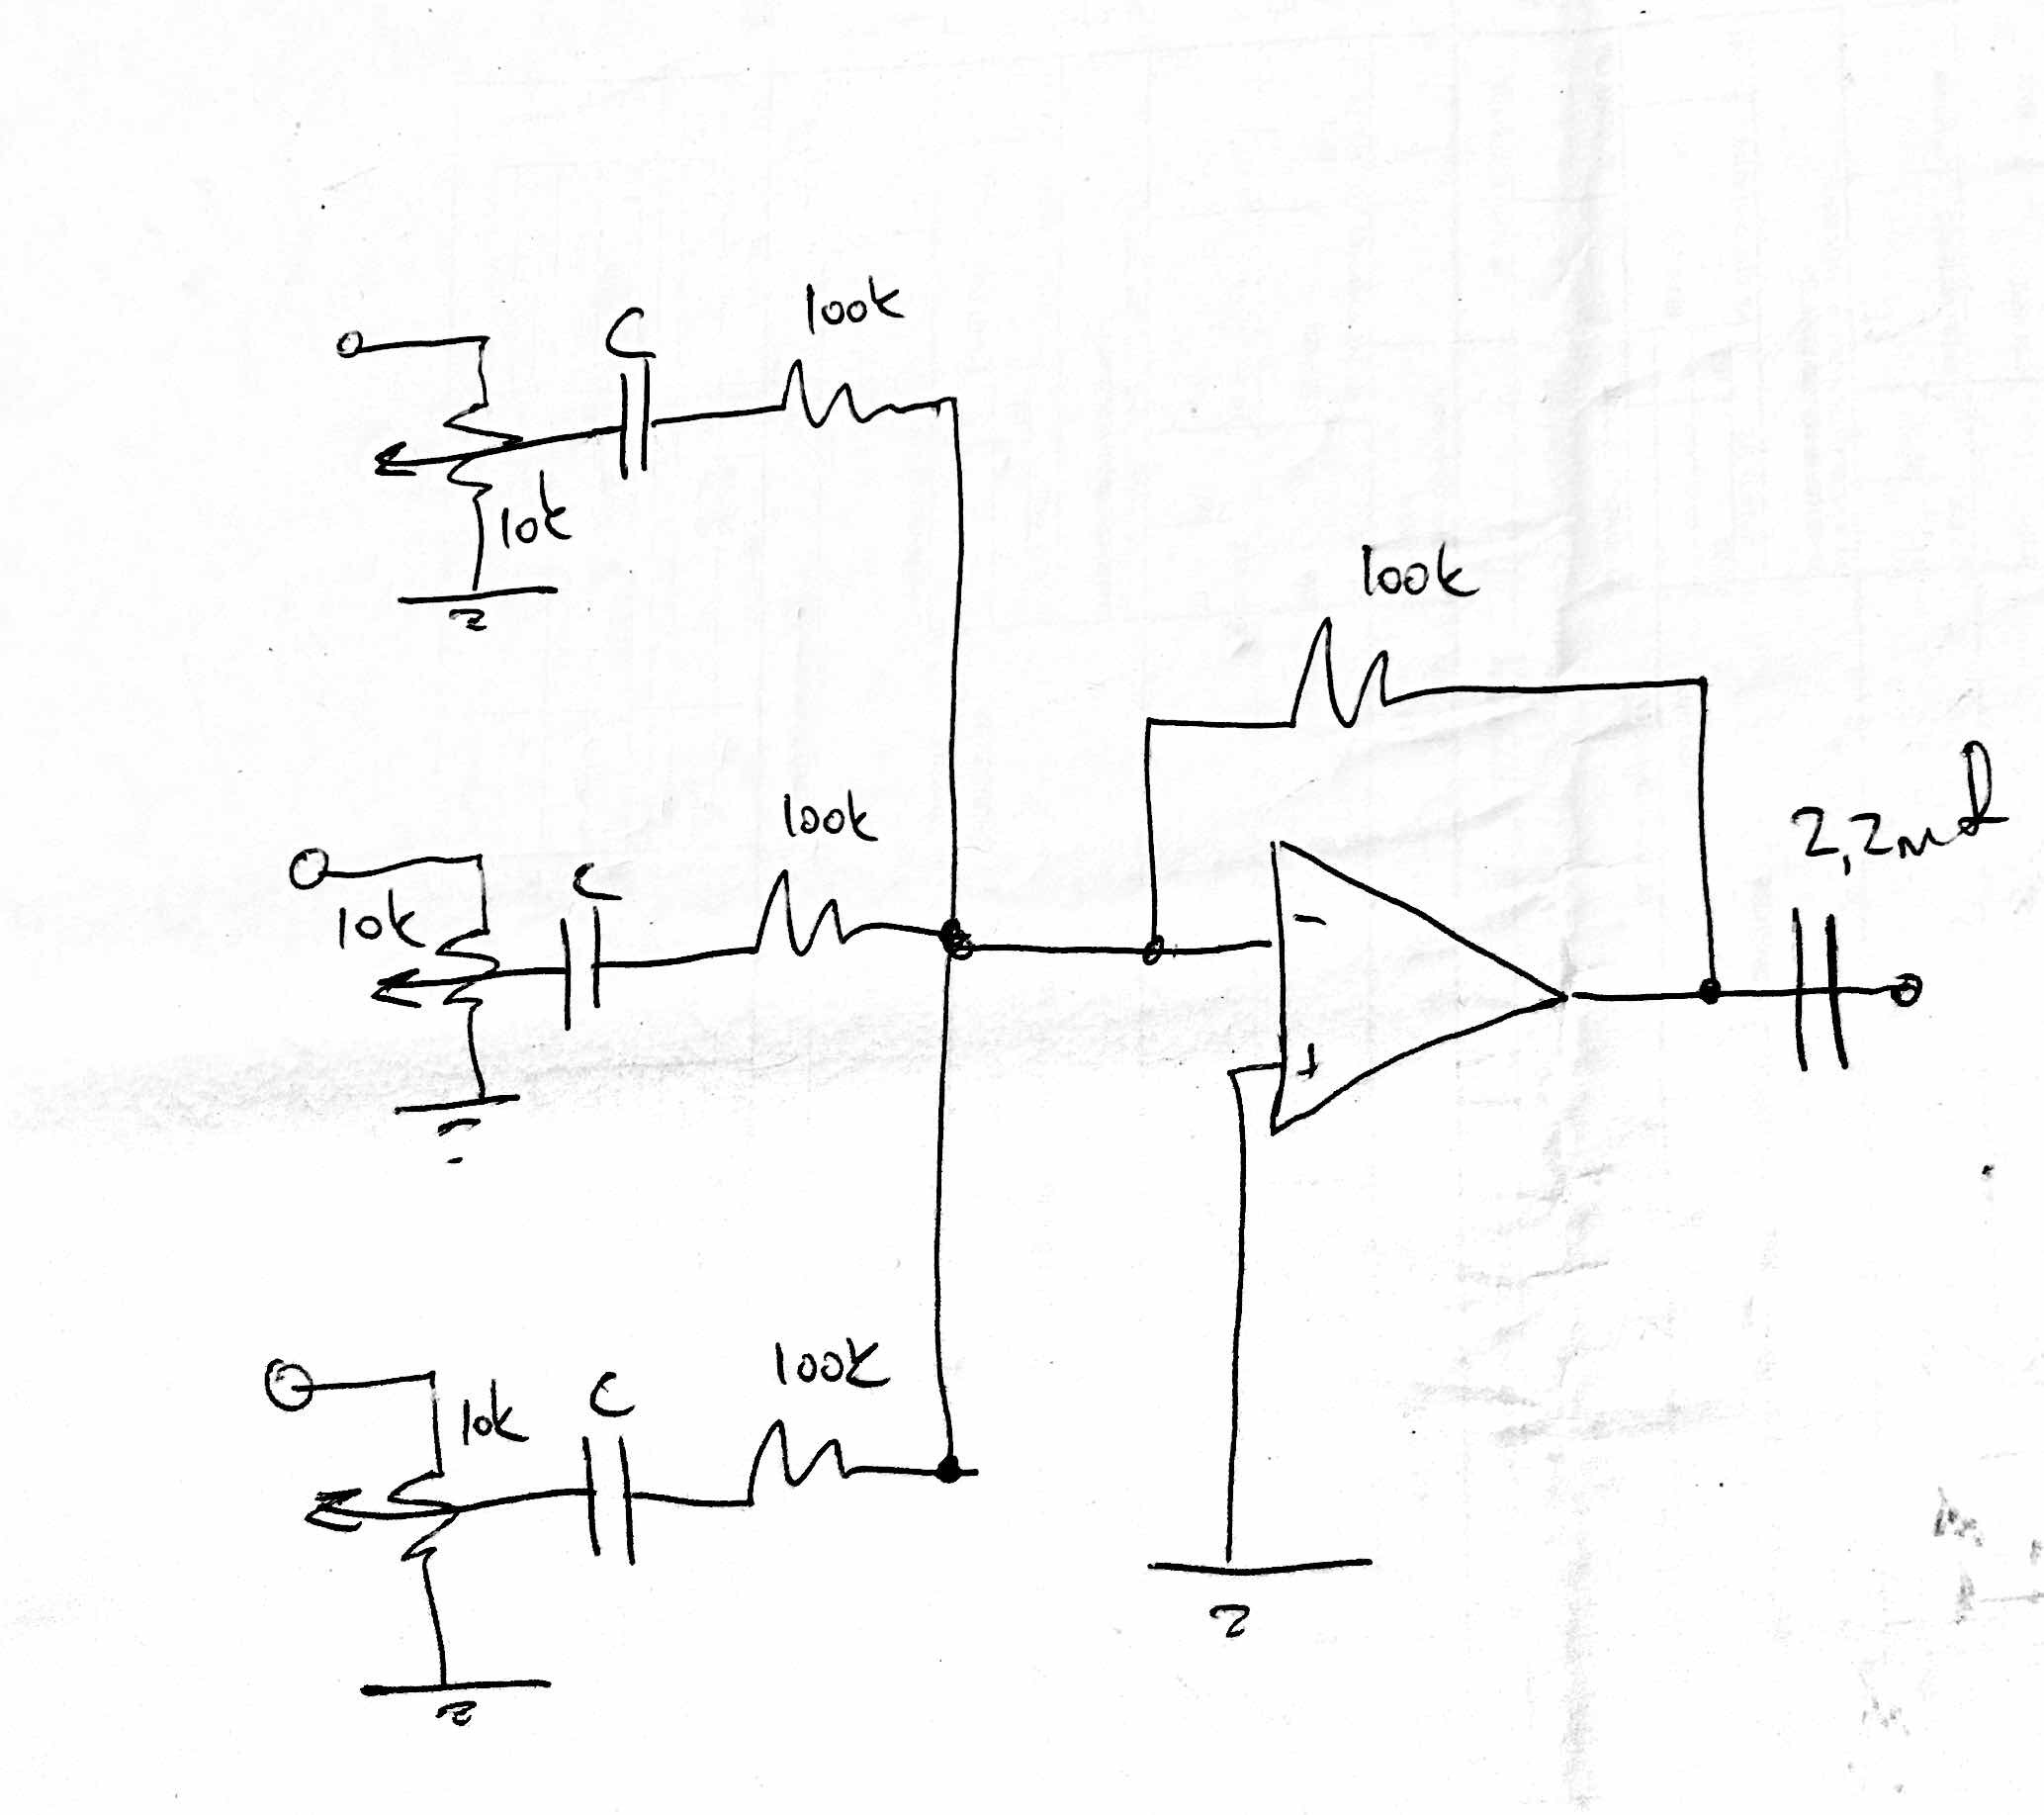 C
100k
10k
100k
100k
C
10k
-
2,2
+
100k
C
10k